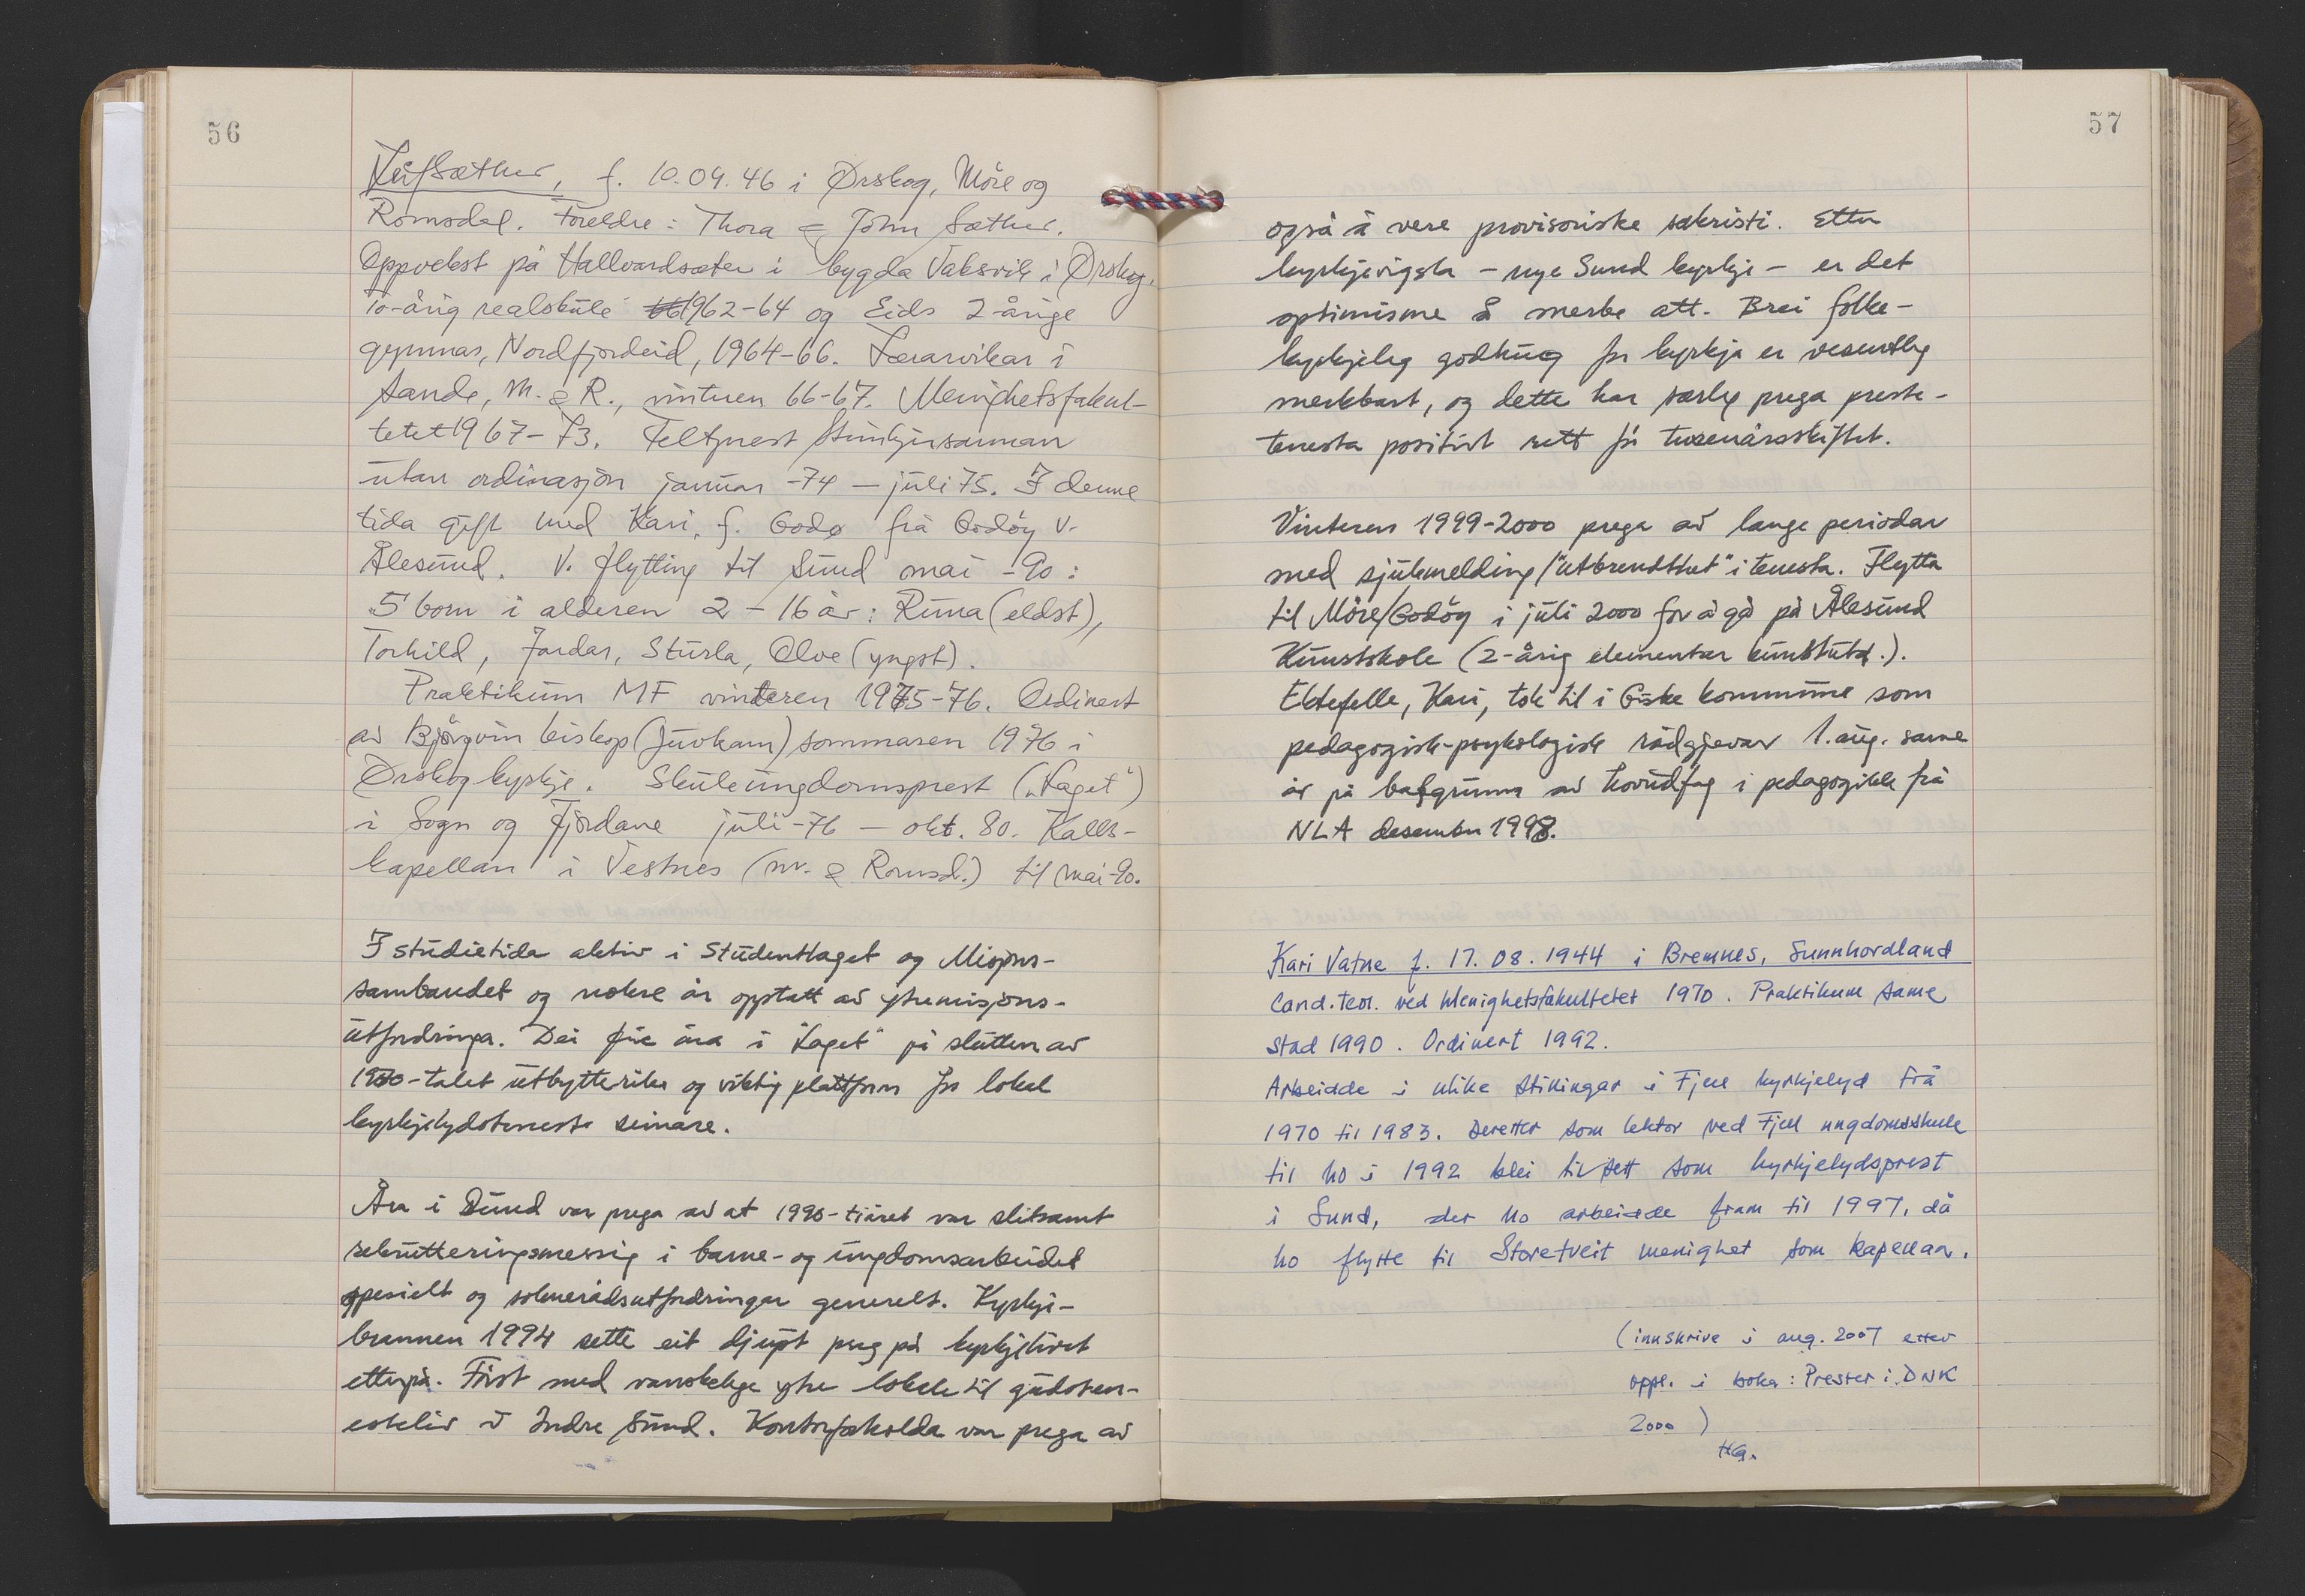 56
Leif Sæther, f. 10.09.46 i Ørskog, Møre og
Romsdal. Foreldre: Thora & John Sæther.
Oppvekst på Hallvardsæter i bygda Vaksvik i Ørskog.
To-årig realskule 1962-64 og Eids 2-årige
gymnas, Nordfjordeid, 1964-66. Lærarvikar i
Sande, M. & R., vinteren 66-67. Menighetsfakul-
tetet 1967-73. Feltprest
utan ordinasjon januar -74 – juli 75. I denne
tida gift med Kari, f. Godø frå Godøy v.
Ålesund. V. flytting til Sund mai -90:
5 born i alderen 2-16 år: Runa (eldst),
Torhild, Jardar, Sturla, Olve (yngst).
Praktikum MF vinteren 1975-76. Ordinert
av Bjørgvin biskop (Juvkam) sommaren 1976 i
Ørskog kyrkje. Skuleungdomsprest ("Laget")
i Sogn og Fjordane juli -76 – okt. 80. Kalls-
kapellan i Vestnes (M. & Romsd.) til mai-90.
I studietida aktiv i Studentlaget og Misjons-
sambandet og nokre år opptatt av ytremisjons-
utfordringa. Dei fire åra i "Laget" på slutten av
1970-talet utbytterike og viktig plattform for lokal
kyrkjelydsteneste seinare.
Åra i Sund var prega av at 1990-tiåret var slitsamt
rekrutteringsmessig i barne- og ungdomsarbeidet
spesielt og soknerådsutfordringar generelt. Kyrkje-
brannen 1994 sette eit djupt preg på kyrkjelivet
etterpå. Først med vanskelege ytre lokale til gudsten-
esteliv i Indre Sund. Kontorforholda var prega av
57
også å vere provisoriske sakristi. Etter
kyrkjevigsla – nye Sund kyrkje – er det
optimisme å merke att. Brei folke-
kyrkjeleg godhug for kyrkja er vesentleg
merkbart, og dette har særleg prega preste-
tenesta positivt rett før tusenårsskiftet.
Vinteren 1999-2000 prega av lange periodar
med sjukmelding/"utbrendthet" i tenesta. Flytta
til Møre/Godøy i juli 2000 for å gå på Ålesund
Kunstskole (2-årig elementær kunstutd.).
Ektefelle, Kari, tok til i Giske kommune som
pedagogisk-psykologisk rådgjevar 1. aug. same
år på bakgrunn av hovudfag i pedagogikk frå
NLA desember 1998.
Kari Vatne f. 17.08.1944 i Bremnes, Sunnhordland
Cand.teol. ved Menighetsfakultetet 1970. Praktikum same
stad 1990. Ordinert 1992.
Arbeidde i ulike stillingar i Fjell kyrkjelyd frå
1970 til 1983. Deretter som lektor ved Fjell ungdomsskule
til ho i 1992 blei tilsett som kyrkjelydsprest
i Sund, der ho arbeidde fram til 1997, då
ho flytte til Storetveit menighet som kapellan.
(innskrive i aug. 2007 etter
oppl. i boka: Prester i DNK
2000)
HG.